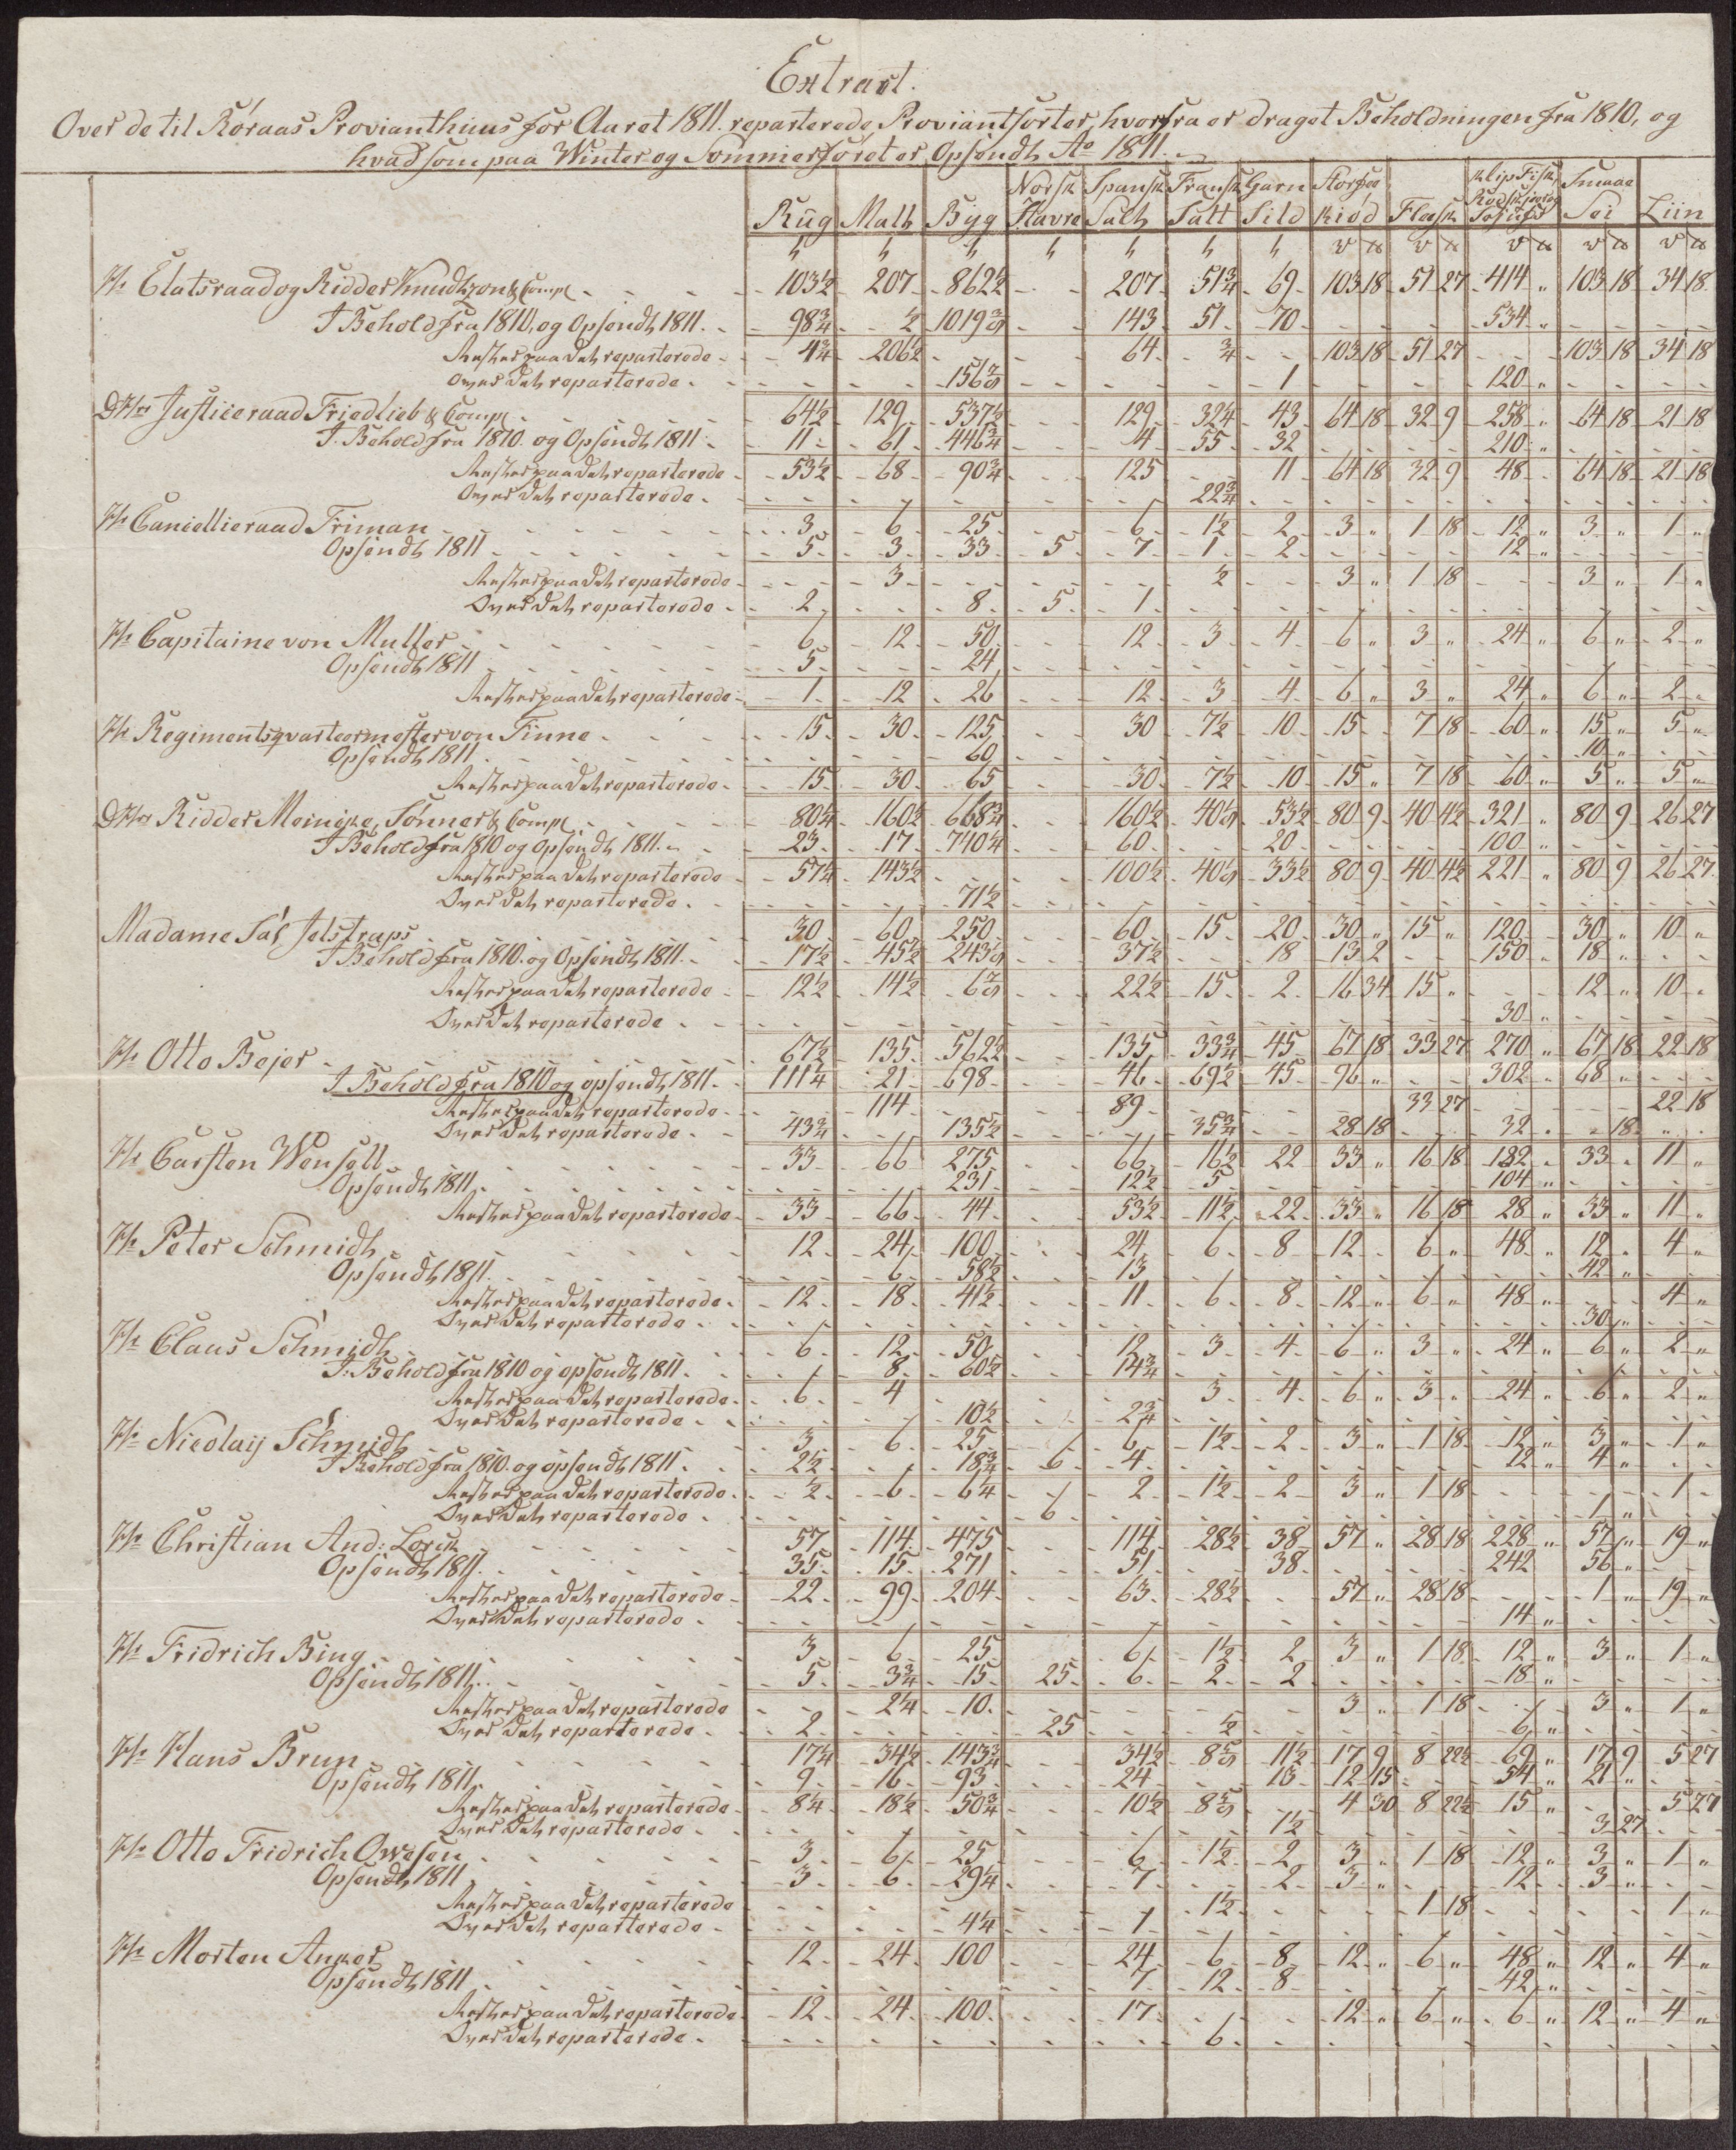 Extract.
Over de til Röraas Provianthuus for Aaret 1811. reparterede Proviantsorter, hvorfra er draget Beholdningen fra 1810, og
hvad som paa Winter og Sommerföret er Opsendt Ao 1811.
Rüg Malt Byg Norsk Havre Spansk Salt Fransk Salt Garn Sild Kiød Flesk Klip Fisk, Smaae Sei Liin
Hr Etatsraad og Ridder Knudtzon & Comp 103½ 207 862½ 207 51¾ 69 103 18 51 27 414 " 103 18 34 18
I Behold fra 1810, og Opsendt 1811. 98¾ ½ 1019 143 51 70 534 "
Rester paa det reparterede 4¾ 206½ 64 ¾ 103 18 51 27 103 18 34 18
Over det reparterede 156 1 120 "
DHrr Justiceraad Friedlieb & Comp 64½ 129 537½ 129 32¼ 43 64 18 32 9 258 " 64 18 21 18
I Behold fra 1810 og Opsendt 1811 11 61 446¾ 4 55 32 210 "
Rester paa det reparterede 53½ 68 90¾ 125 11 64 18 32 9 48 " 64 18 21 18
Over det reparterede 22¾
Hr Cancellieraad Friman 3 6 25 6 1½ 2 3 " 1 18 12 " 3 " 1 "
Opsendt 1811 5 3 33 5 7 1 2 12 "
Rester paa det reparterede 3 ½ 3 " 1 18 3 " 1 "
Over det reparterede 2 8 5 1
Hr Capitaine von Muller 6 12 50 12 3 4 6 " 3 " 24 " 6 " 2 "
Opsendt 1811 5 24
Rester paa det reparterede 1 12 26 12 3 4 6 " 3 " 24 " 6 " 2 "
Hr Regimentsqvarteermester von Finne 15 30 125 30 7½ 10 15 7 18 60 " 15 " 5 "
Opsendt 1811 60 10 "
Rester paa det reparterede 15 30 65 30 7½ 10 15 " 7 18 60 " 5 " 5 "
DHrr Ridder Meincke, Sönner & Comp 80¼ 160½ 668¾ 160½ 40 53½ 80 9 40 4½ 321 " 80 9 26 27
I Behold fra 1810 og Opsendt 1811. 23 17 740¼ 60 20 100 "
Rester paa det reparterede 57¼ 143½ 100½ 40 33½ 80 9 40 4½ 221 " 80 9 26 27
Over det reparterede 71½
Madame Sal. Jelstrups 30 60 250 60 15 20 30 " 15 " 120 30 " 10 "
I Behold fra 1810 og Opsendt 1811. 17½ 45½ 243 37½ 18 13 2 150 " 18 "
Rester paa det reparterede 12½ 14½ 6 22½ 15 2 16 34 15 " 12 " 10 "
Over det reparterede 30 "
Hr Otto Bejer 67½ 135 562½ 135 33¾ 45 67 18 33 27 270 " 67 18 22 18
I Behold fra 1810 og opsendt 1811. 111¼ 21 698 46 69½ 45 96 " 302 " 68 "
Rester paa det reparterede 114 89 33 27 22 18
Over det reparterede 43¾ 135½ 35¾ 28 18 32 " " 18
Hr Carsten Wensell 33 66 275 66 16½ 22 33 " 16 18 132 " 33 " 11 "
Opsendt 1811 231 12½ 5 104 "
Rester paa det reparterede 33 66 44 53½ 11½ 22 33 " 16 18 28 " 33 " 11 "
Hr Peter Schmidt 12 24 100 24 6 8 12 6 " 48 " 12 " 4 "
Opsendt 1811 6 58½ 13 42 "
Rester paa det reparterede 12 18 41½ 11 6 8 12 " 6 " 48 " 4 "
Over det reparterede 30 "
Hr Claus Schmidt 6 12 50 12 3 4 6 " 3 " 24 " 6 " 2 "
I Behold fra 1810 og opsendt 1811 8 60½ 14¾
Rester paa det reparterede 6 4 3 4 6 " 3 " 24 " 6 " 2 "
Over det reparterede 10½ 2¾
Hr Nicolaij Schmidt 3 6 25 6 1½ 2 3 " 1 18 12 " 3 " 1 "
I Behold fra 1810. og opsendt 1811 2½ 18¾ 6 4 12 " 4 "
Rester paa det reparterede ½ 6 6¼ 2 1½ 2 3 " 1 18 1
Over det reparterede 6 1 "
Hr Christian And: Lorck 57 114 475 114 28½ 38 57 " 28 18 228 " 57 " 19 "
Opsendt 1811 35 15 271 51 38 242 56 "
Rester paa det reparterede 22 99 204 63 28½ 57 " 28 18 1 " 19 "
Over det reparterede 14 "
Hr Fridrich Bing 3 6 25 6 1½ 2 3 " 1 18 12 " 3 " 1 "
Opsendt 1811 5 3¾ 15 25 6 2 2 18 "
Rester paa det reparterede 2¼ 10 3 " 1 18 3 " 1 "
Over det reparterede 2 25 ½ 6 "
Hr Hans Brun 17¼ 34½ 143¾ 34½ 8 11½ 17 9 8 22½ 69 " 17 9 5 27
Opsendt 1811 9 16 93 24 13 12 15 54 " 21 "
Rester paa det reparterede 8¼ 18½ 50¾ 10½ 8 4 30 8 22½ 15 " 5 27
Over det reparterede 1½ 3 27
Hr Otto Fridrich Owesen 3 6 25 6 1½ 2 3 " 1 18 12 " 3 " 1 "
Opsendt 1811 3 6 29¼ 7 2 3 " 12 " 3 "
Rester paa det reparterede 1½ 1 18 1 "
Over det reparterede 4¼ 1
Hr Morten Anker 12 24 100 24 6 8 12 " 6 " 48 " 12 " 4 "
Opsendt 1811 7 12 8 42 "
Rester paa det reparterede 12 24 100 17 12 " 6 " 6 " 12 " 4 "
Over det reparterede 6